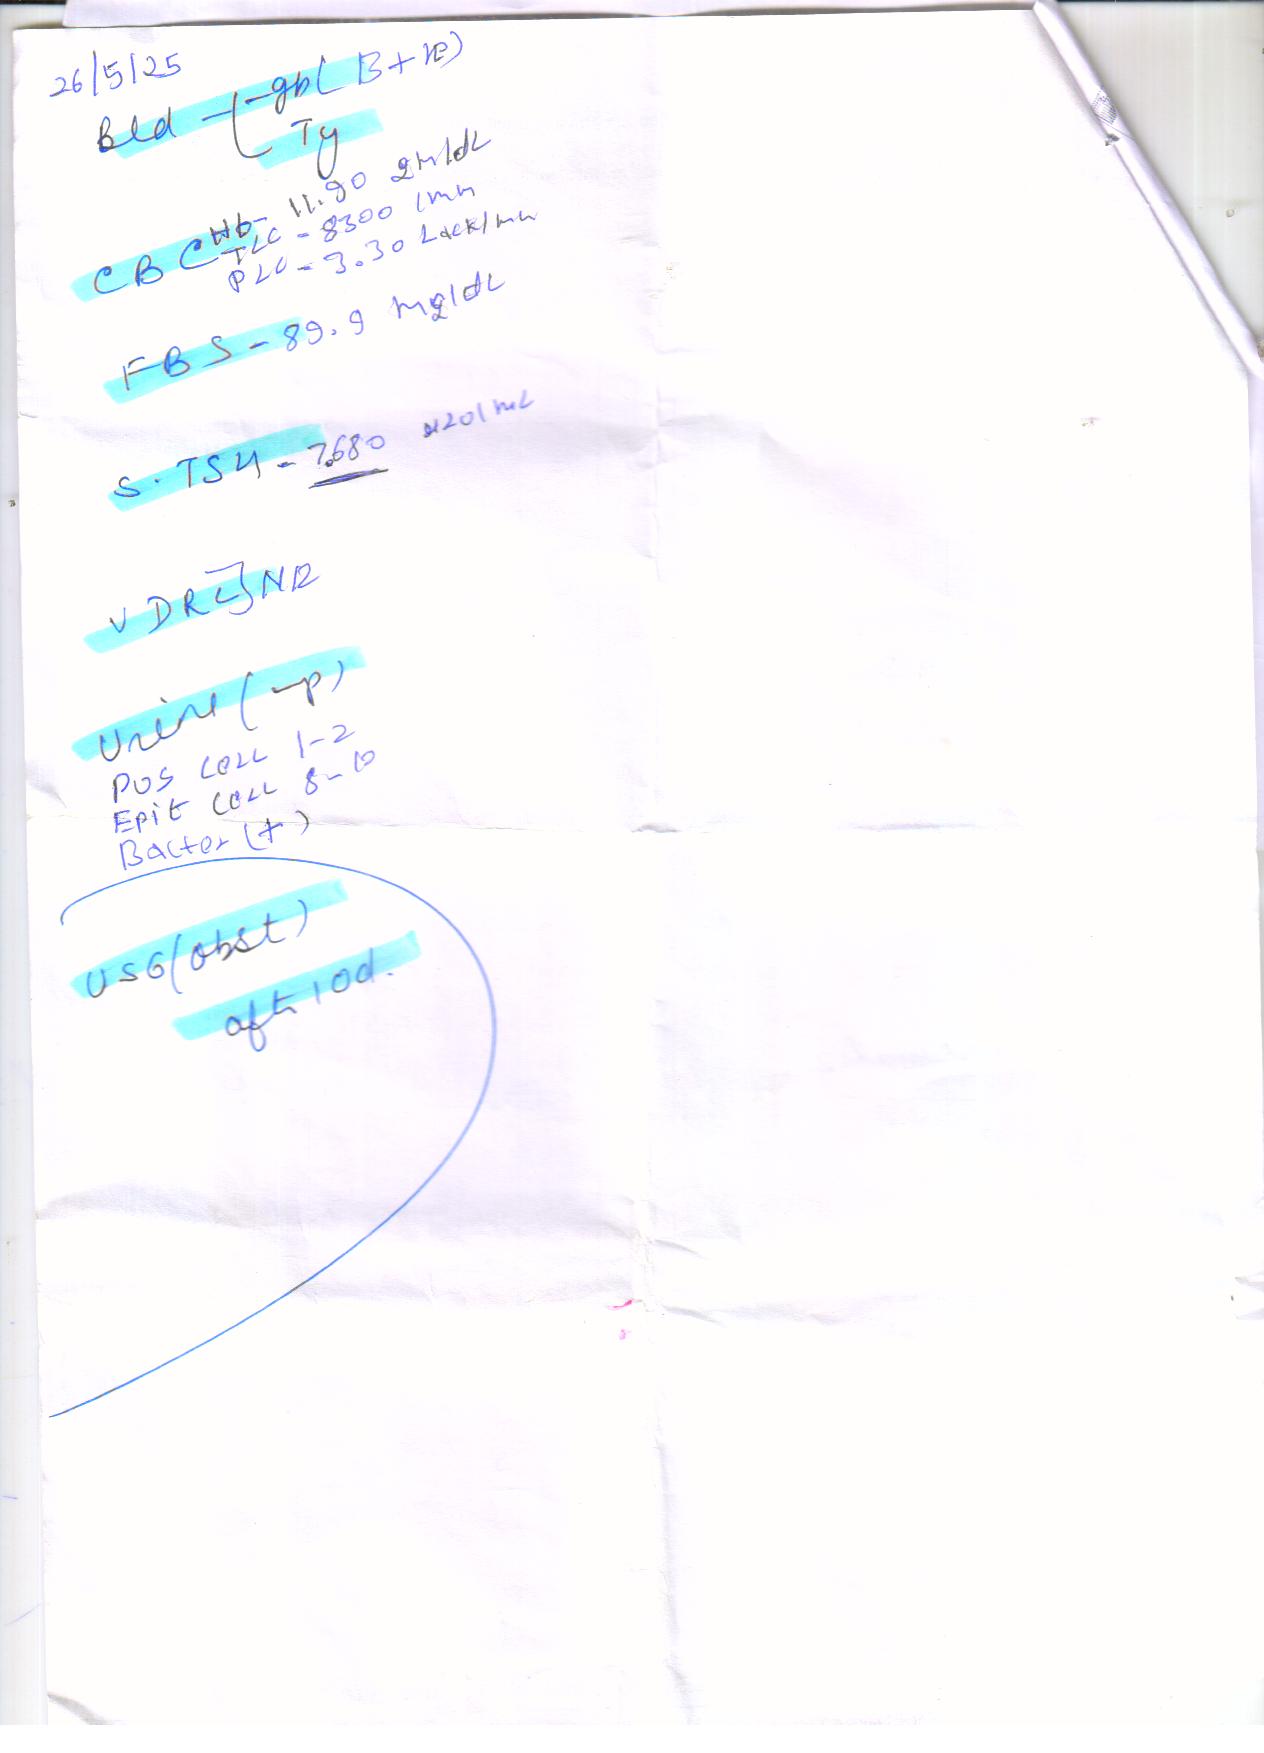 26/5/25
Bld - gb ( B+ve)
Ty
CBC Hb- 11.90 gm/dL
TLC - 8300 /mm
PLC - 3.30 Lack/mm
FBS - 89.9 mg/dL
S. TSH - 7.680 /mL
VDRL] NR
Urine (
Pus cell 1-2
Epit cell 8-10
Bacter (+)
USG (obst)
aft 10d.